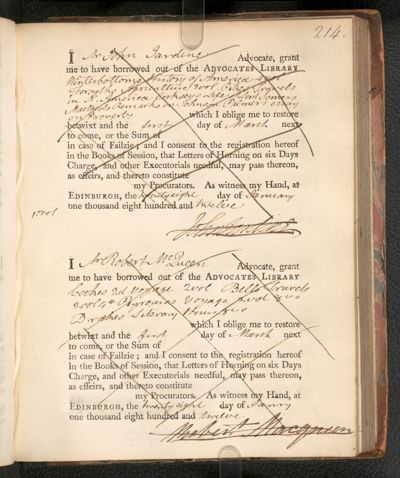 214.
I Mr John Jardine Advocate, grant
me to have borrowed out of the ADVOCATES LIBRARY
Winterbottoms History of America
Agriculture Travels
in N. America
Remarks on
on Poverty which I oblige me to restore
betwixt and the first day of March next
to come, or the Sum of
in case of Failzie; and I consent to the registration hereof
in the Books of Session, that Letters of Horning on six Days
Charge, and other Executorials needful, may pass thereon,
as effeirs, and thereto constitute
my Procurators. As witness my Hand, at
EDINBURGH, the twentyeight day of January
one thousand eight hundred and twelve
10 vol
I Mr Robert McQueen Advocate, grant
me to have borrowed out of the ADVOCATES LIBRARY
Cookes 2d voyage 2vol Bells Travels
2vol voyage
Drakes Literary
which I oblige me to restore
betwixt and the first day of March next
to come, or the Sum of
in case of Failzie; and I consent to the registration hereof
in the Books of Session, that Letters of Horning on six Days
Charge, and other Executorials needful, may pass thereon,
as effeirs, and thereto constitute
my Procurators. As witness my Hand, at
EDINBURGH, the twentyeight day of Janry
one thousand eight hundred and twelve
Robert Macqueen